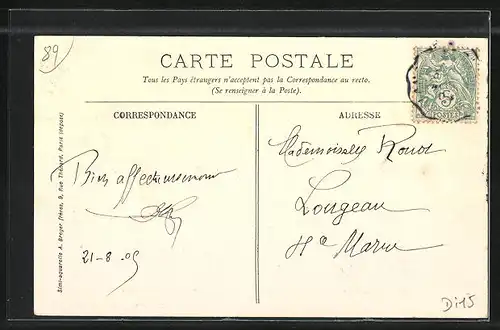 89
CARTE POSTALE
Tous les Pays étrangers n'acceptent pas la Correspondance au recto.
(Se renseigner à la Poste).
CORRESPONDANCE
ADRESSE
Bien affectueusement
21-8-05
Mademoiselle
Longeau
Hte Marne
5
POSTES
Simi-aquarelle A. Breger frères, 9, Rue Thénard, Paris (déposé)
Di15